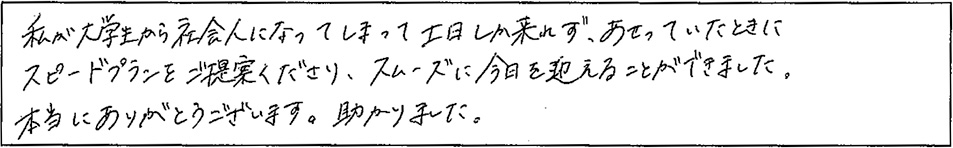 私が大学生から社会人になってしまって土日しか来れず、あせっていたときに
スピードプランをご提案くださり、スムーズに今日を迎えることができました。
本当にありがとうございます。助かりました。